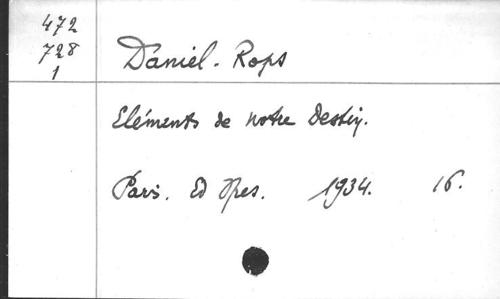 472
728
1
Daniel-Rops
Eléments de notre Destin.
Paris. Ed Spes. 1934. 16.